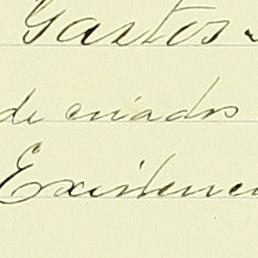 Gastos
de criados
Existenci